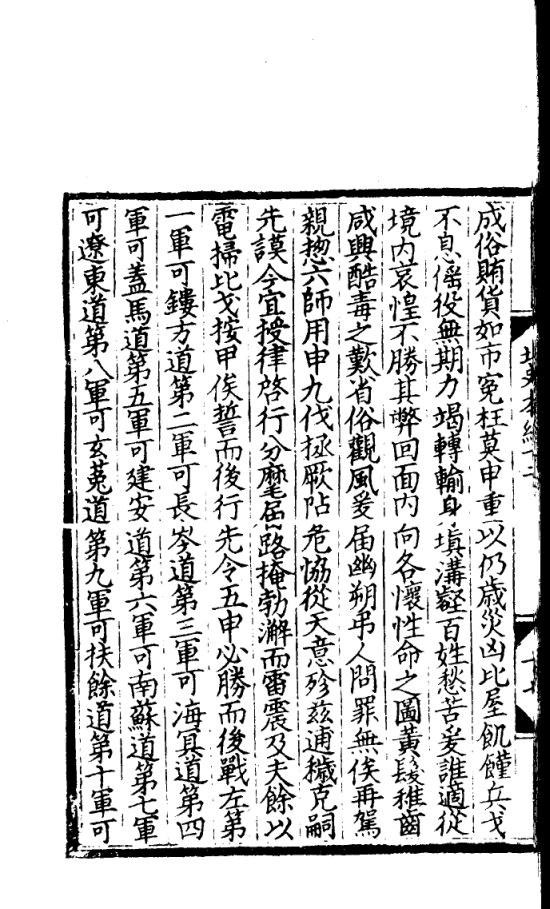 成俗賄貨如市寃枉莫申重以仍歳災凶比屋飢饉兵戈
不息傜役無期力竭轉輸身塡溝壑百姓愁苦爰誰適從
境内哀惶不勝其弊回面内向各懷性命之圖黃髮稚齒
咸興酷毒之歎省俗觀風爰届幽朔弔人問罪無俟再駕
親揔六師用申九伐拯厥阽危協從天意殄兹逋穢克嗣
先謨今宜授律啓行分麾届路掩勃澥而雷震及夫餘以
電掃比戈按甲俟誓而後行先令五申必勝而後戰左第
一軍可鏤方道第二軍可長岑道第三軍可海冥道第四
軍可蓋馬道第五軍可建安道第六軍可南蘇道第七軍
可遼東道第八軍可玄菟道第九軍可扶餘道第十軍可